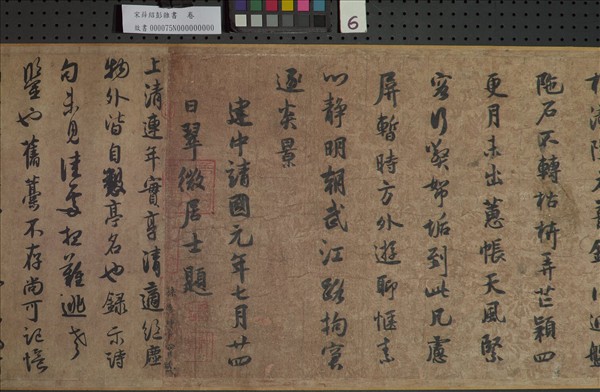 宋薛紹彭雜書 卷
故書000075N000000000
6
陁石不轉枯梢弄芒穎四
更月未出蕙帳天風緊
容行襞帑垢到此凡慮
屏暫時方外遊聊愜素
心靜明朝武江路拘窘
逐炎景
建中靖國元年七月廿四
日翠微居士題
上清連年實享清適經虛
物外皆自製亭名也錄示詩
句未見佳處但難逃老
鑒也舊藁不存尚可記憶